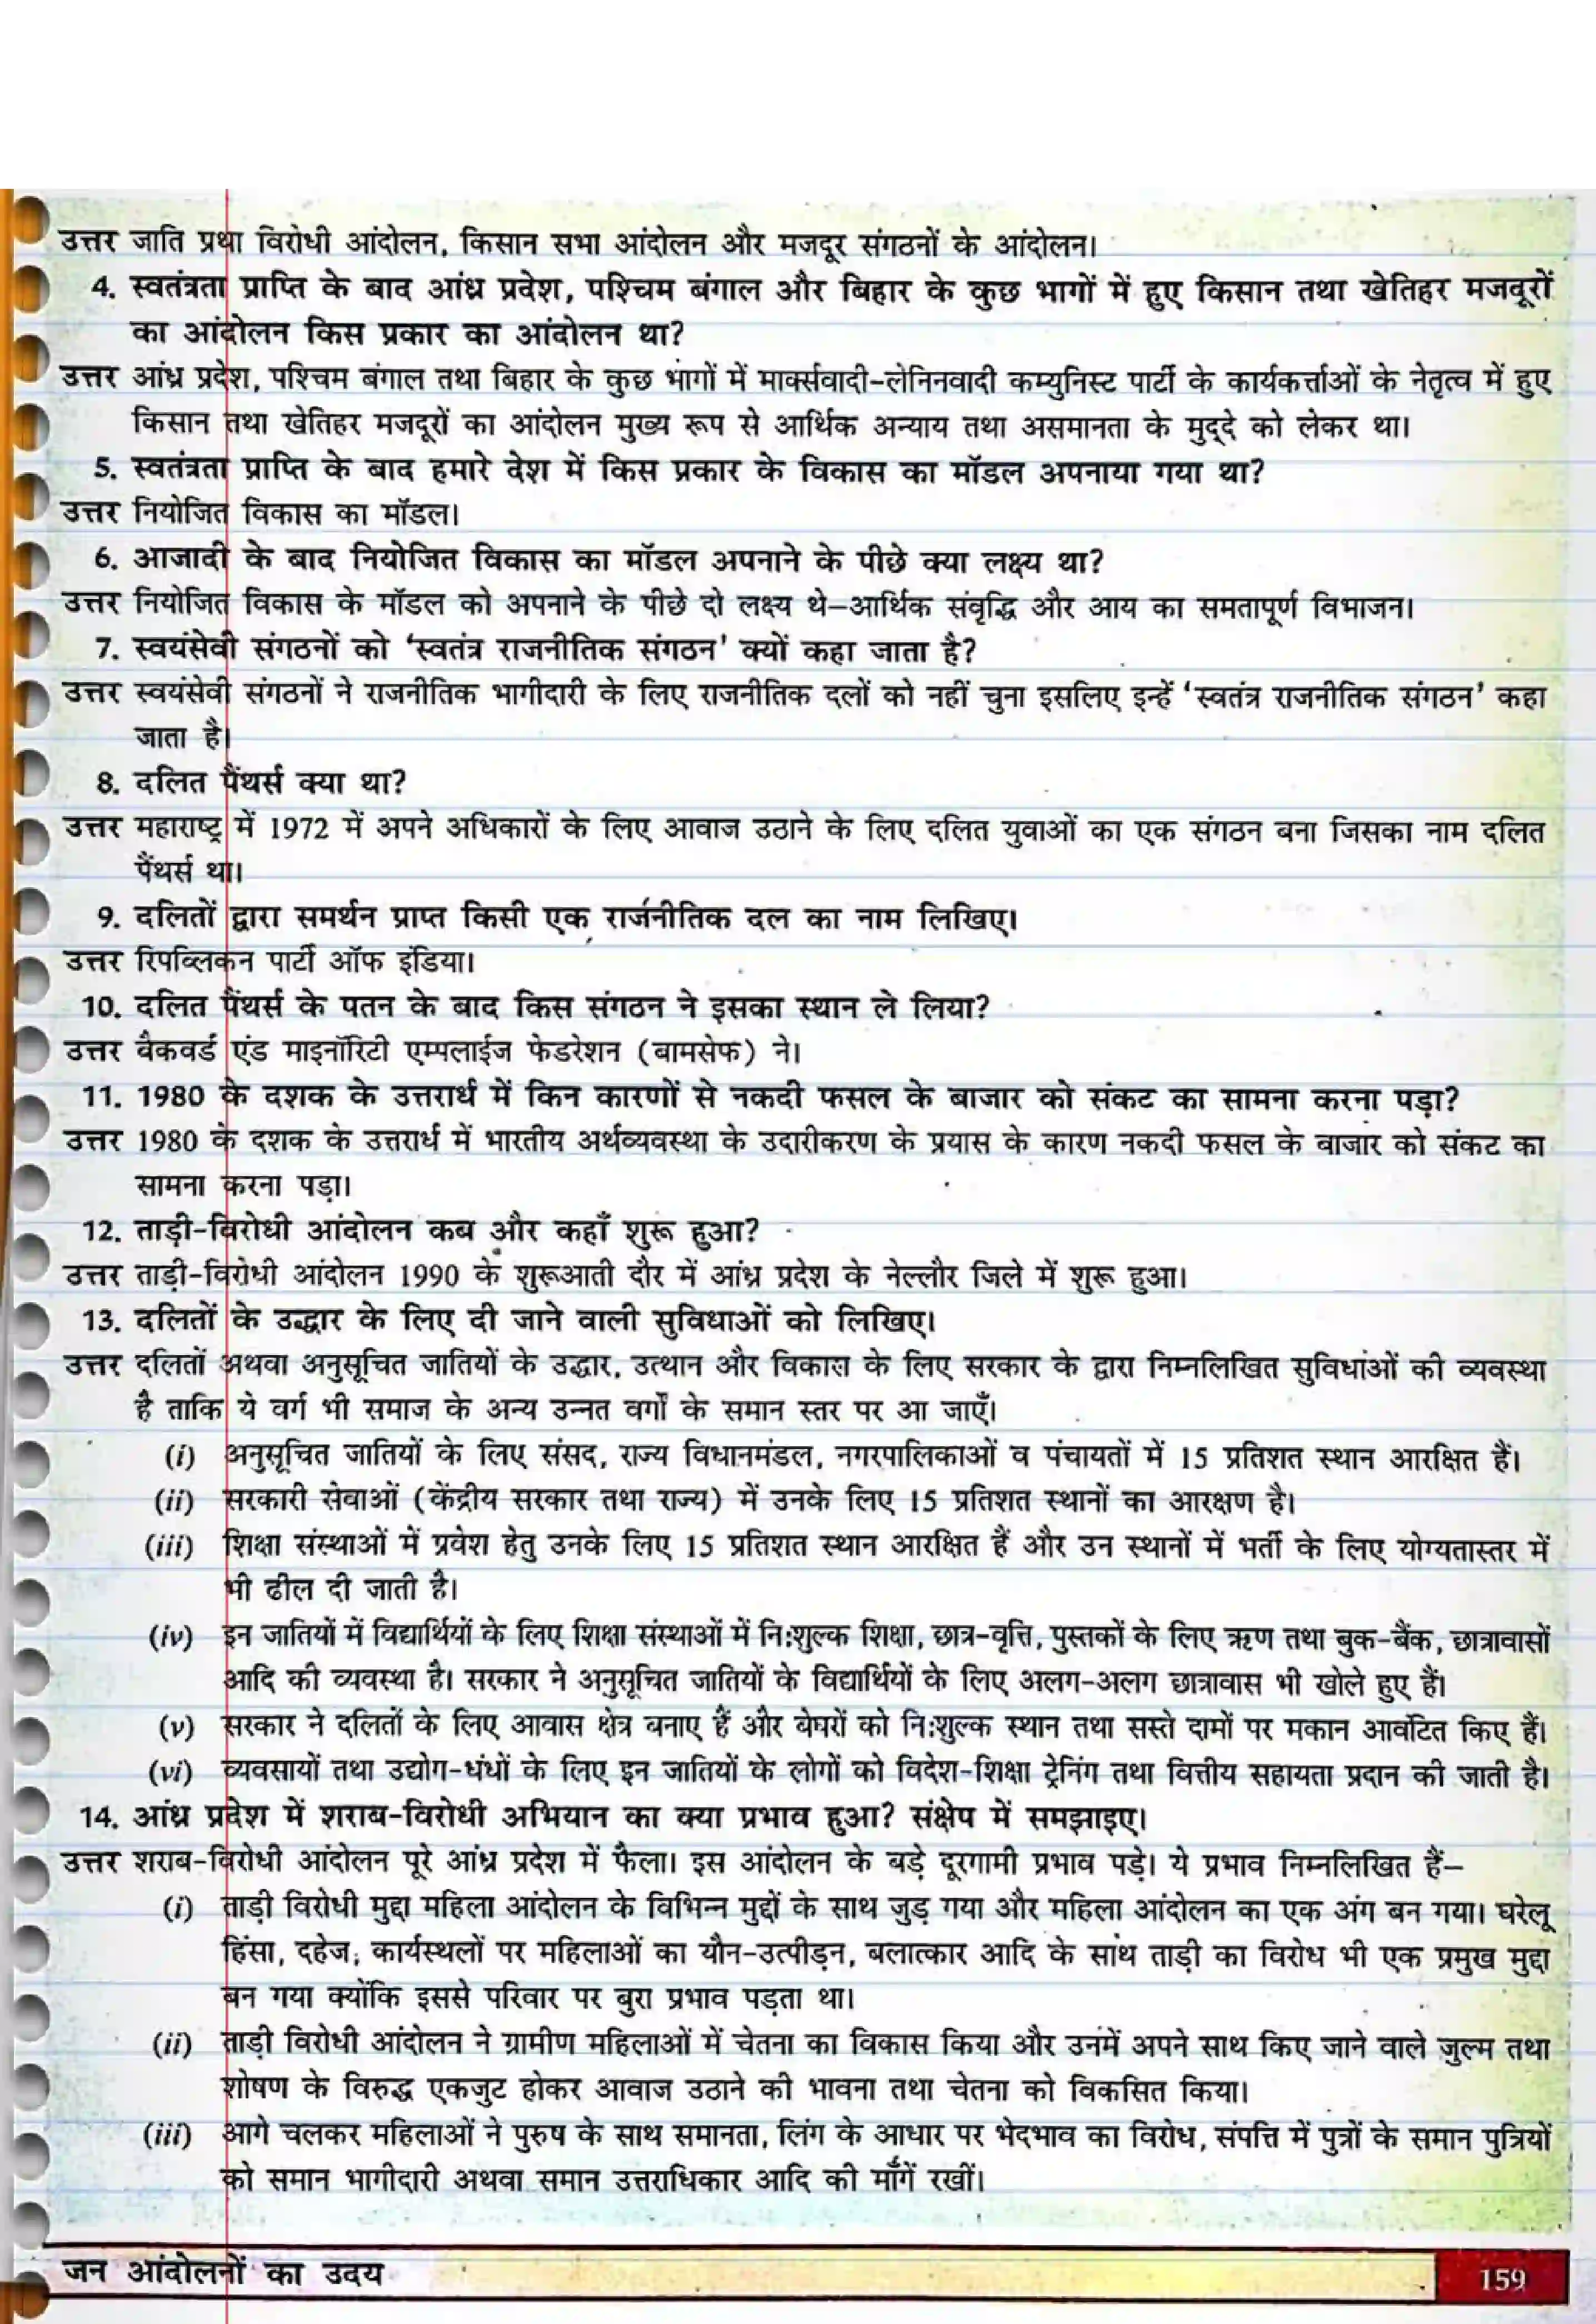 उत्तर जाति प्रथा विरोधी आंदोलन, किसान सभा आंदोलन और मजदूर संगठनों के आंदोलन।
4. स्वतंत्रता प्राप्ति के बाद आंध्र प्रदेश, पश्चिम बंगाल और बिहार के कुछ भागों में हुए किसान तथा खेतिहर मजदूरों
का आंदोलन किस प्रकार का आंदोलन था?
उत्तर आंध्र प्रदेश, पश्चिम बंगाल तथा बिहार के कुछ भागों में मार्क्सवादी-लेनिनवादी कम्युनिस्ट पार्टी के कार्यकर्त्ताओं के नेतृत्व में हुए
किसान तथा खेतिहर मजदूरों का आंदोलन मुख्य रूप से आर्थिक अन्याय तथा असमानता के मुद्दे को लेकर था।
5. स्वतंत्रता प्राप्ति के बाद हमारे देश में किस प्रकार के विकास का मॉडल अपनाया गया था?
उत्तर नियोजित विकास का मॉडल।
6. आजादी के बाद नियोजित विकास का मॉडल अपनाने के पीछे क्या लक्ष्य था?
उत्तर नियोजित विकास के मॉडल को अपनाने के पीछे दो लक्ष्य थे–आर्थिक संवृद्धि और आय का समतापूर्ण विभाजन।
7. स्वयंसेवी संगठनों को ‘स्वतंत्र राजनीतिक संगठन’ क्यों कहा जाता है?
उत्तर स्वयंसेवी संगठनों ने राजनीतिक भागीदारी के लिए राजनीतिक दलों को नहीं चुना इसलिए इन्हें ‘स्वतंत्र राजनीतिक संगठन’ कहा
जाता है।
8. दलित पैंथर्स क्या था?
उत्तर महाराष्ट्र में 1972 में अपने अधिकारों के लिए आवाज उठाने के लिए दलित युवाओं का एक संगठन बना जिसका नाम दलित
पैंथर्स था।
9. दलितों द्वारा समर्थन प्राप्त किसी एक राजनीतिक दल का नाम लिखिए।
उत्तर रिपब्लिकन पार्टी ऑफ इंडिया।
10. दलित पैंथर्स के पतन के बाद किस संगठन ने इसका स्थान ले लिया?
उत्तर बैकवर्ड एंड माइनॉरिटी एम्पलाईज फेडरेशन (बामसेफ) ने।
11. 1980 के दशक के उत्तरार्ध में किन कारणों से नकदी फसल के बाजार को संकट का सामना करना पड़ा?
उत्तर 1980 के दशक के उत्तरार्ध में भारतीय अर्थव्यवस्था के उदारीकरण के प्रयास के कारण नकदी फसल के बाजार को संकट का
सामना करना पड़ा।
12. ताड़ी-विरोधी आंदोलन कब और कहाँ शुरू हुआ?
उत्तर ताड़ी-विरोधी आंदोलन 1990 के शुरूआती दौर में आंध्र प्रदेश के नेल्लौर जिले में शुरू हुआ।
13. दलितों के उद्धार के लिए दी जाने वाली सुविधाओं को लिखिए।
उत्तर दलितों अथवा अनुसूचित जातियों के उद्धार, उत्थान और विकास के लिए सरकार के द्वारा निम्नलिखित सुविधाओं की व्यवस्था
है ताकि ये वर्ग भी समाज के अन्य उन्नत वर्गों के समान स्तर पर आ जाएँ।
(i) अनुसूचित जातियों के लिए संसद, राज्य विधानमंडल, नगरपालिकाओं व पंचायतों में 15 प्रतिशत स्थान आरक्षित हैं।
(ii) सरकारी सेवाओं (केंद्रीय सरकार तथा राज्य) में उनके लिए 15 प्रतिशत स्थानों का आरक्षण है।
(iii) शिक्षा संस्थाओं में प्रवेश हेतु उनके लिए 15 प्रतिशत स्थान आरक्षित हैं और उन स्थानों में भर्ती के लिए योग्यतास्तर में
भी ढील दी जाती है।
(iv) इन जातियों में विद्यार्थियों के लिए शिक्षा संस्थाओं में निःशुल्क शिक्षा, छात्र-वृत्ति, पुस्तकों के लिए ऋण तथा बुक-बैंक, छात्रावासों
आदि की व्यवस्था है। सरकार ने अनुसूचित जातियों के विद्यार्थियों के लिए अलग-अलग छात्रावास भी खोले हुए हैं।
(v) सरकार ने दलितों के लिए आवास क्षेत्र बनाए हैं और बेघरों को निःशुल्क स्थान तथा सस्ते दामों पर मकान आवंटित किए हैं।
(vi) व्यवसायों तथा उद्योग-धंधों के लिए इन जातियों के लोगों को विदेश-शिक्षा ट्रेनिंग तथा वित्तीय सहायता प्रदान की जाती है।
14. आंध्र प्रदेश में शराब-विरोधी अभियान का क्या प्रभाव हुआ? संक्षेप में समझाइए।
उत्तर शराब-विरोधी आंदोलन पूरे आंध्र प्रदेश में फैला। इस आंदोलन के बड़े दूरगामी प्रभाव पड़े। ये प्रभाव निम्नलिखित हैं–
(i) ताड़ी विरोधी मुद्दा महिला आंदोलन के विभिन्न मुद्दों के साथ जुड़ गया और महिला आंदोलन का एक अंग बन गया। घरेलू
हिंसा, दहेज, कार्यस्थलों पर महिलाओं का यौन-उत्पीड़न, बलात्कार आदि के साथ ताड़ी का विरोध भी एक प्रमुख मुद्दा
बन गया क्योंकि इससे परिवार पर बुरा प्रभाव पड़ता था।
(ii) ताड़ी विरोधी आंदोलन ने ग्रामीण महिलाओं में चेतना का विकास किया और उनमें अपने साथ किए जाने वाले जुल्म तथा
शोषण के विरुद्ध एकजुट होकर आवाज उठाने की भावना तथा चेतना को विकसित किया।
(iii) आगे चलकर महिलाओं ने पुरुष के साथ समानता, लिंग के आधार पर भेदभाव का विरोध, संपत्ति में पुत्रों के समान पुत्रियों
को समान भागीदारी अथवा समान उत्तराधिकार आदि की माँगें रखीं।
जन आंदोलनों का उदय
159